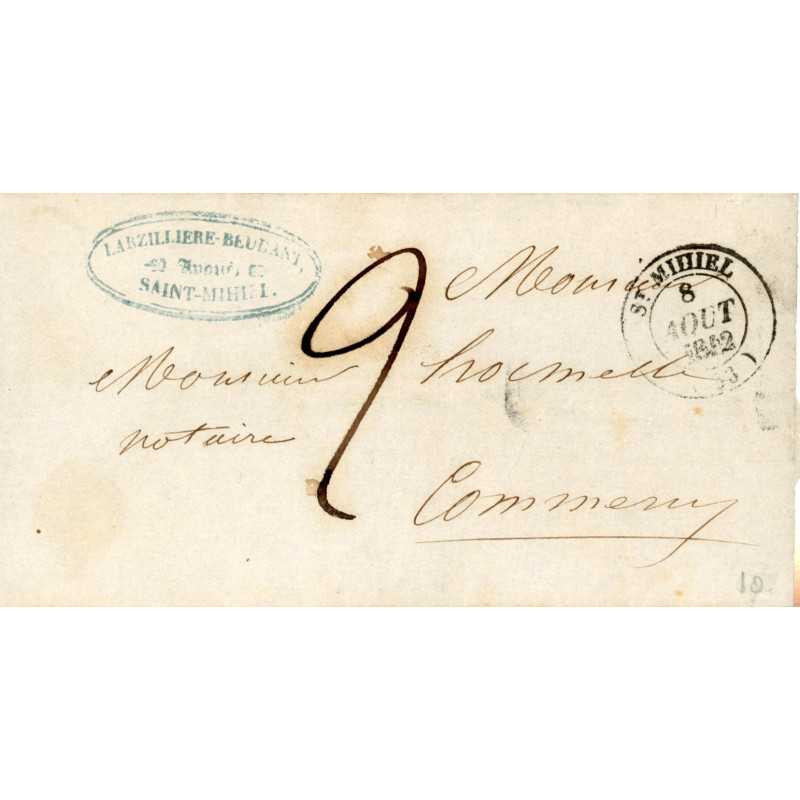 LARZILLIERE-BEUDANT,
Avoué
SAINT-MIHIEL.
ST MIHIEL
8
AOUT
1852
9
Monsieur
Monsieur
notaire
Commercy
10